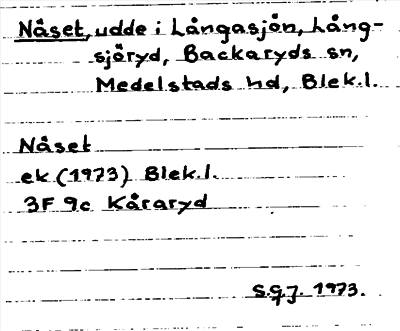 Nåset, udde i Långasjön, Lång-
sjöryd, Backaryds sn,
Medelstads hd, Blek.l.
Nåset
ek (1973) Blek.l.
3F 9c Kåraryd
S.G.J. 1973.